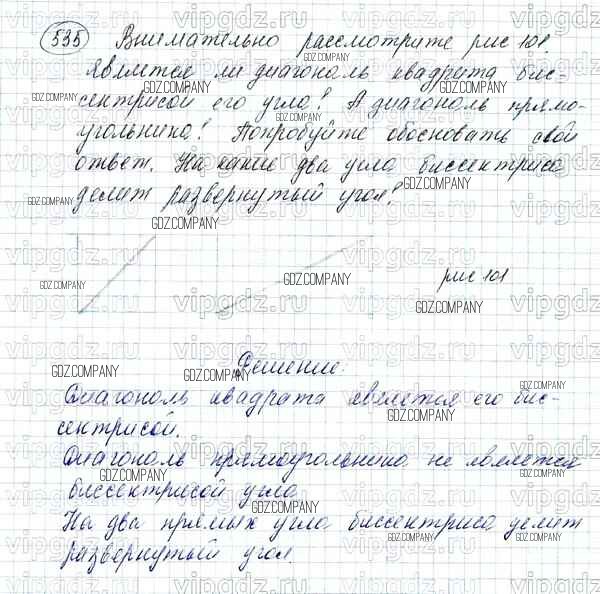 535 Внимательно рассмотрите рис 101.
Является ли диагональ квадрата бис-
сектрисой его угла? А диагональ прямо-
угольника? Попробуйте обосновать свой
ответ. На какие два угла биссектриса
делит развернутый угол?
рис 101
Решение:
Диагональ квадрата является его бис-
сектрисой.
Диагональ прямоугольника не является
биссектрисой угла
На два прямых угла биссектриса делит
развернутый угол.
GDZ.COMPANY
vipgdz.ru